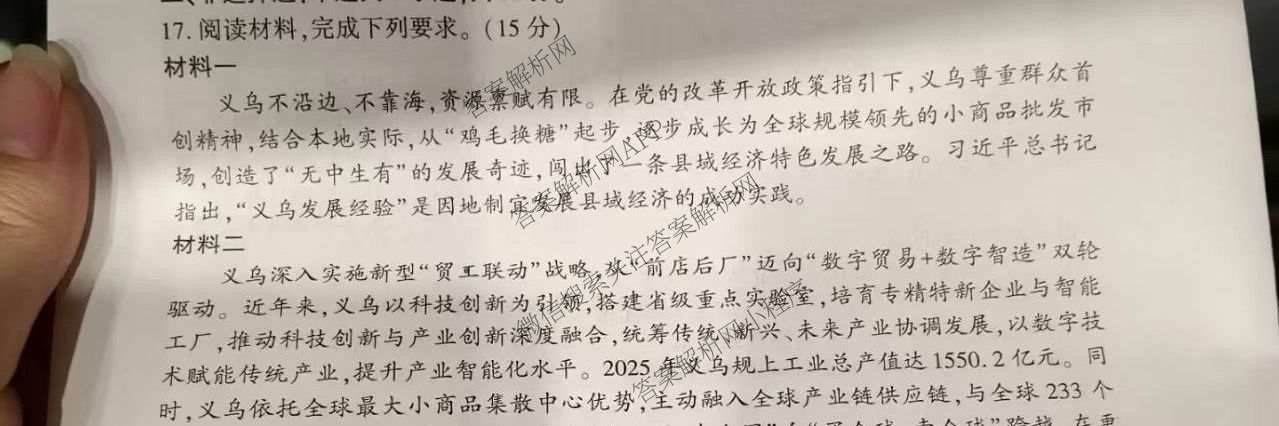 17. 阅读材料,完成下列要求。(15分)
材料一
义乌不沿边、不靠海,资源禀赋有限。在党的改革开放政策指引下,义乌尊重群众首
创精神,结合本地实际,从“鸡毛换糖”起步,逐步成长为全球规模领先的小商品批发市
场,创造了“无中生有”的发展奇迹,闯出了一条县域经济特色发展之路。习近平总书记
指出,“义乌发展经验”是因地制宜发展县域经济的成功实践。
材料二
义乌深入实施新型“贸工联动”战略,从“前店后厂”迈向“数字贸易+数字智造”双轮
驱动。近年来,义乌以科技创新为引领,搭建省级重点实验室,培育专精特新企业与智能
工厂,推动科技创新与产业创新深度融合,统筹传统、新兴、未来产业协调发展,以数字技
术赋能传统产业,提升产业智能化水平。2025年义乌规上工业总产值达1550.2亿元。同
时,义乌依托全球最大小商品集散中心优势,主动融入全球产业链供应链,与全球233个
答案解析网
答案解析网APP
微信搜索关注答案解析网
答案解析网小程序